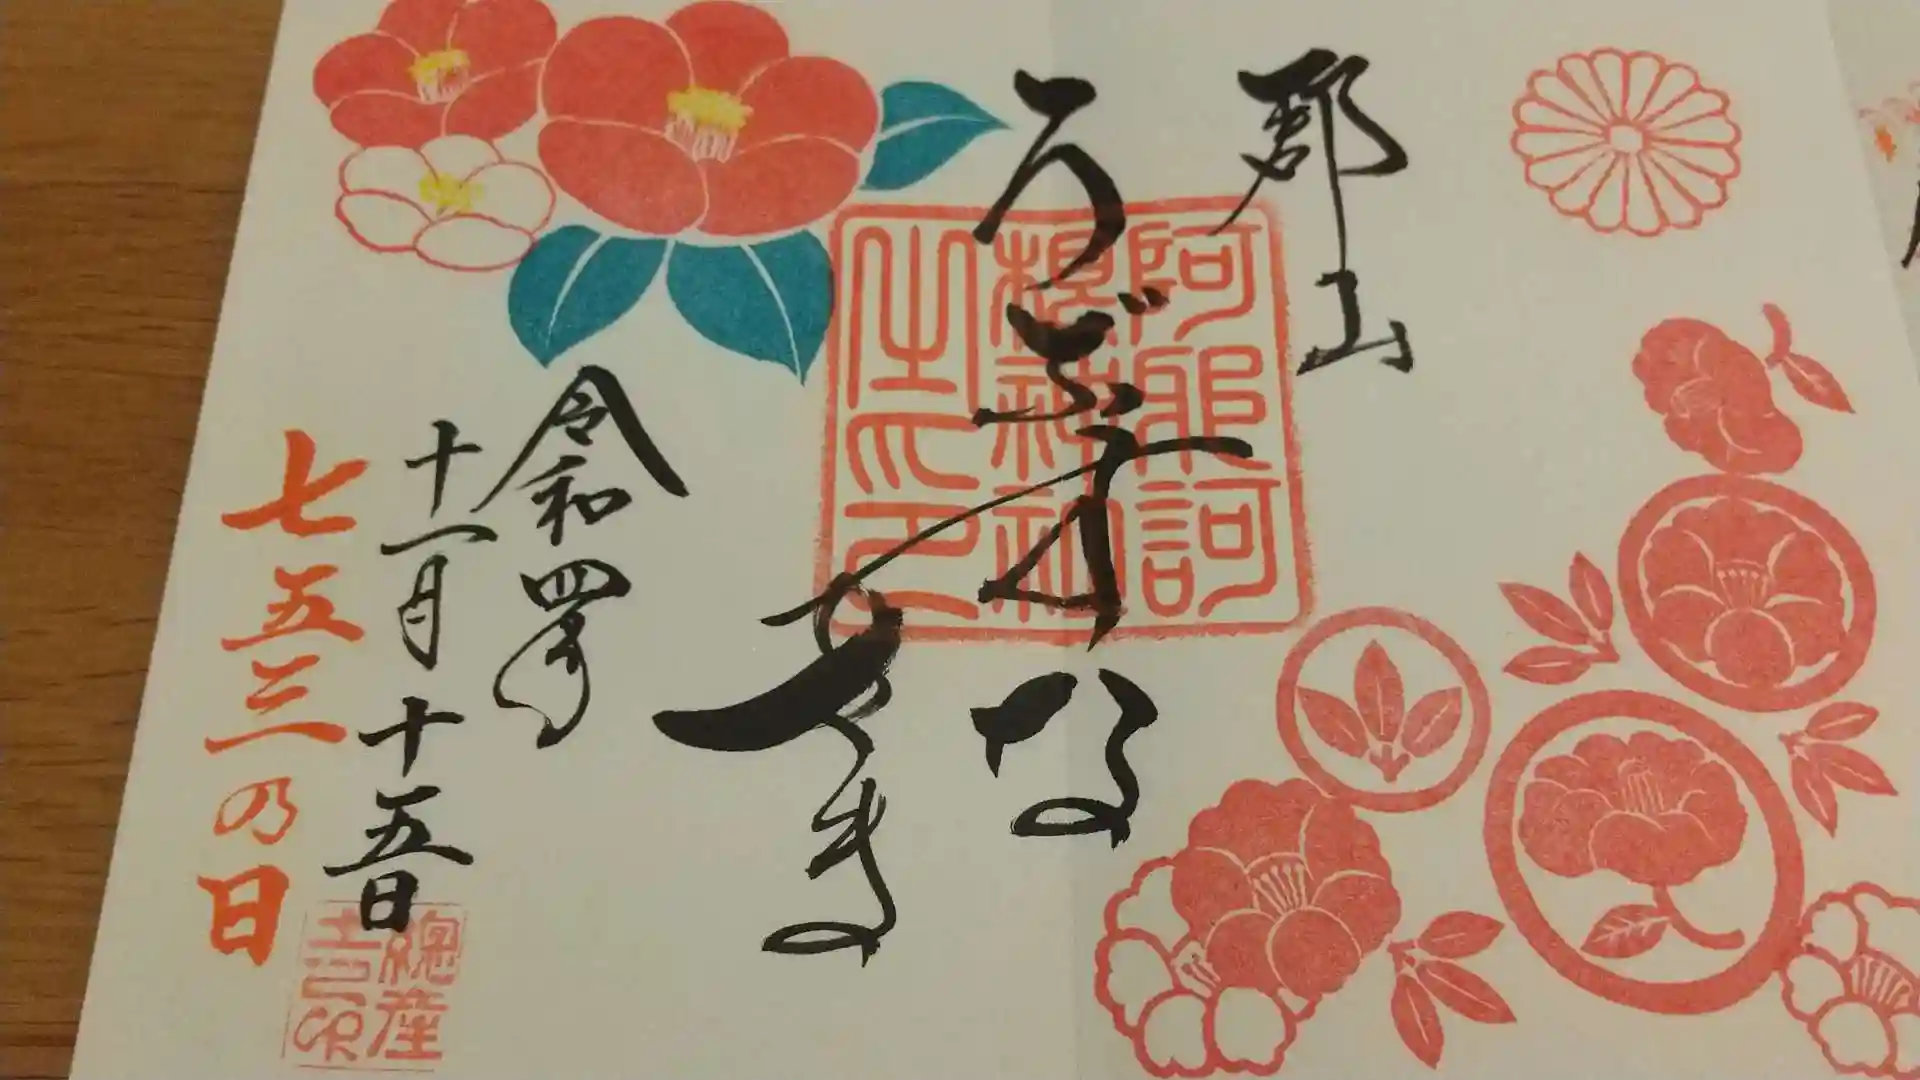 郡山
うぶすな
さま
令和四年
十一月十五日
七五三の日
阿邪訶
根神社
之印
總産
土印